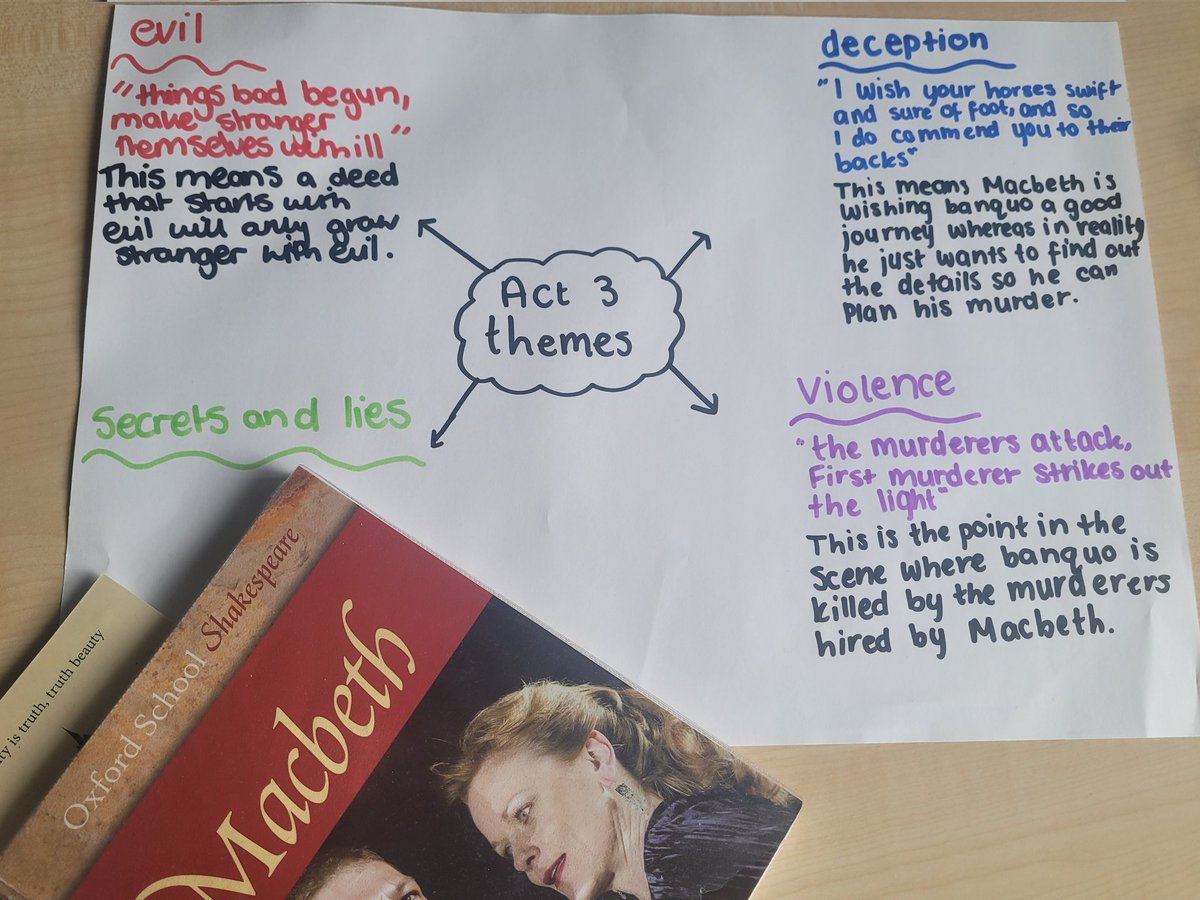 evil
"things bad begun,
make stranger
themselves with ill"
This means a deed
that starts with
evil will only grow
stranger with evil.
deception
"I wish your horses swift
and sure of foot, and so
I do commend you to their
backs"
This means Macbeth is
wishing banquo a good
journey whereas in reality
he just wants to find out
the details so he can
Plan his murder.
Act 3
themes
Secrets and lies
Violence
"the murderers attack,
First murderer strikes out
the light"
This is the point in the
scene where banquo is
killed by the murderers
hired by Macbeth.
Oxford School Shakespeare
Macbeth
ty is truth, truth beauty